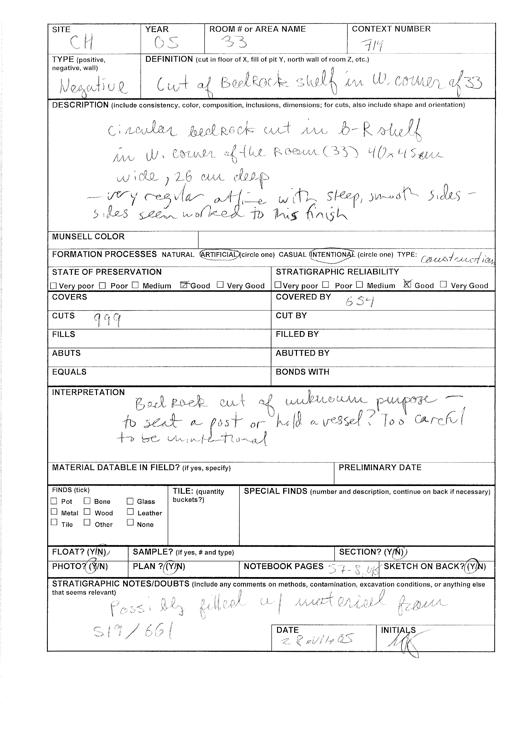 SITE YEAR ROOM # or AREA NAME CONTEXT NUMBER
CH 05 33 714
TYPE (positive, negative, wall) DEFINITION (cut in floor of X, fill of pit Y, north wall of room Z, etc.)
Negative Cut of BedRock shelf in W. corner of 33
DESCRIPTION (include consistency, color, composition, inclusions, dimensions; for cuts, also include shape and orientation)
Circular bedrock cut in b-R shelf
in W. corner of the Room (33) 40x45cm
wide, 26 cm deep
– very regular with steep, smooth sides –
sides seem worked to this finish
MUNSELL COLOR
FORMATION PROCESSES NATURAL ARTIFICIAL (circle one) CASUAL INTENTIONAL (circle one) TYPE: construction
STATE OF PRESERVATION STRATIGRAPHIC RELIABILITY
Very poor Poor Medium Good Very Good Very poor Poor Medium Good Very Good
COVERS COVERED BY 654
CUTS 999 CUT BY
FILLS FILLED BY
ABUTS ABUTTED BY
EQUALS BONDS WITH
INTERPRETATION
BedRock cut of unknown purpose –
to seat a post or hold a vessel? Too careful
to be unintentional
MATERIAL DATABLE IN FIELD? (if yes, specify) PRELIMINARY DATE
FINDS (tick) TILE: (quantity buckets?) SPECIAL FINDS (number and description, continue on back if necessary)
Pot Bone Glass
Metal Wood Leather
Tile Other None
FLOAT? (Y/N) SAMPLE? (if yes, # and type) SECTION? (Y/N)
PHOTO? (Y/N) PLAN? (Y/N) NOTEBOOK PAGES 57-8, SKETCH ON BACK? (Y/N)
STRATIGRAPHIC NOTES/DOUBTS (include any comments on methods, contamination, excavation conditions, or anything else that seems relevant)
Possibly filled w/ material from
519/661
DATE INITIALS